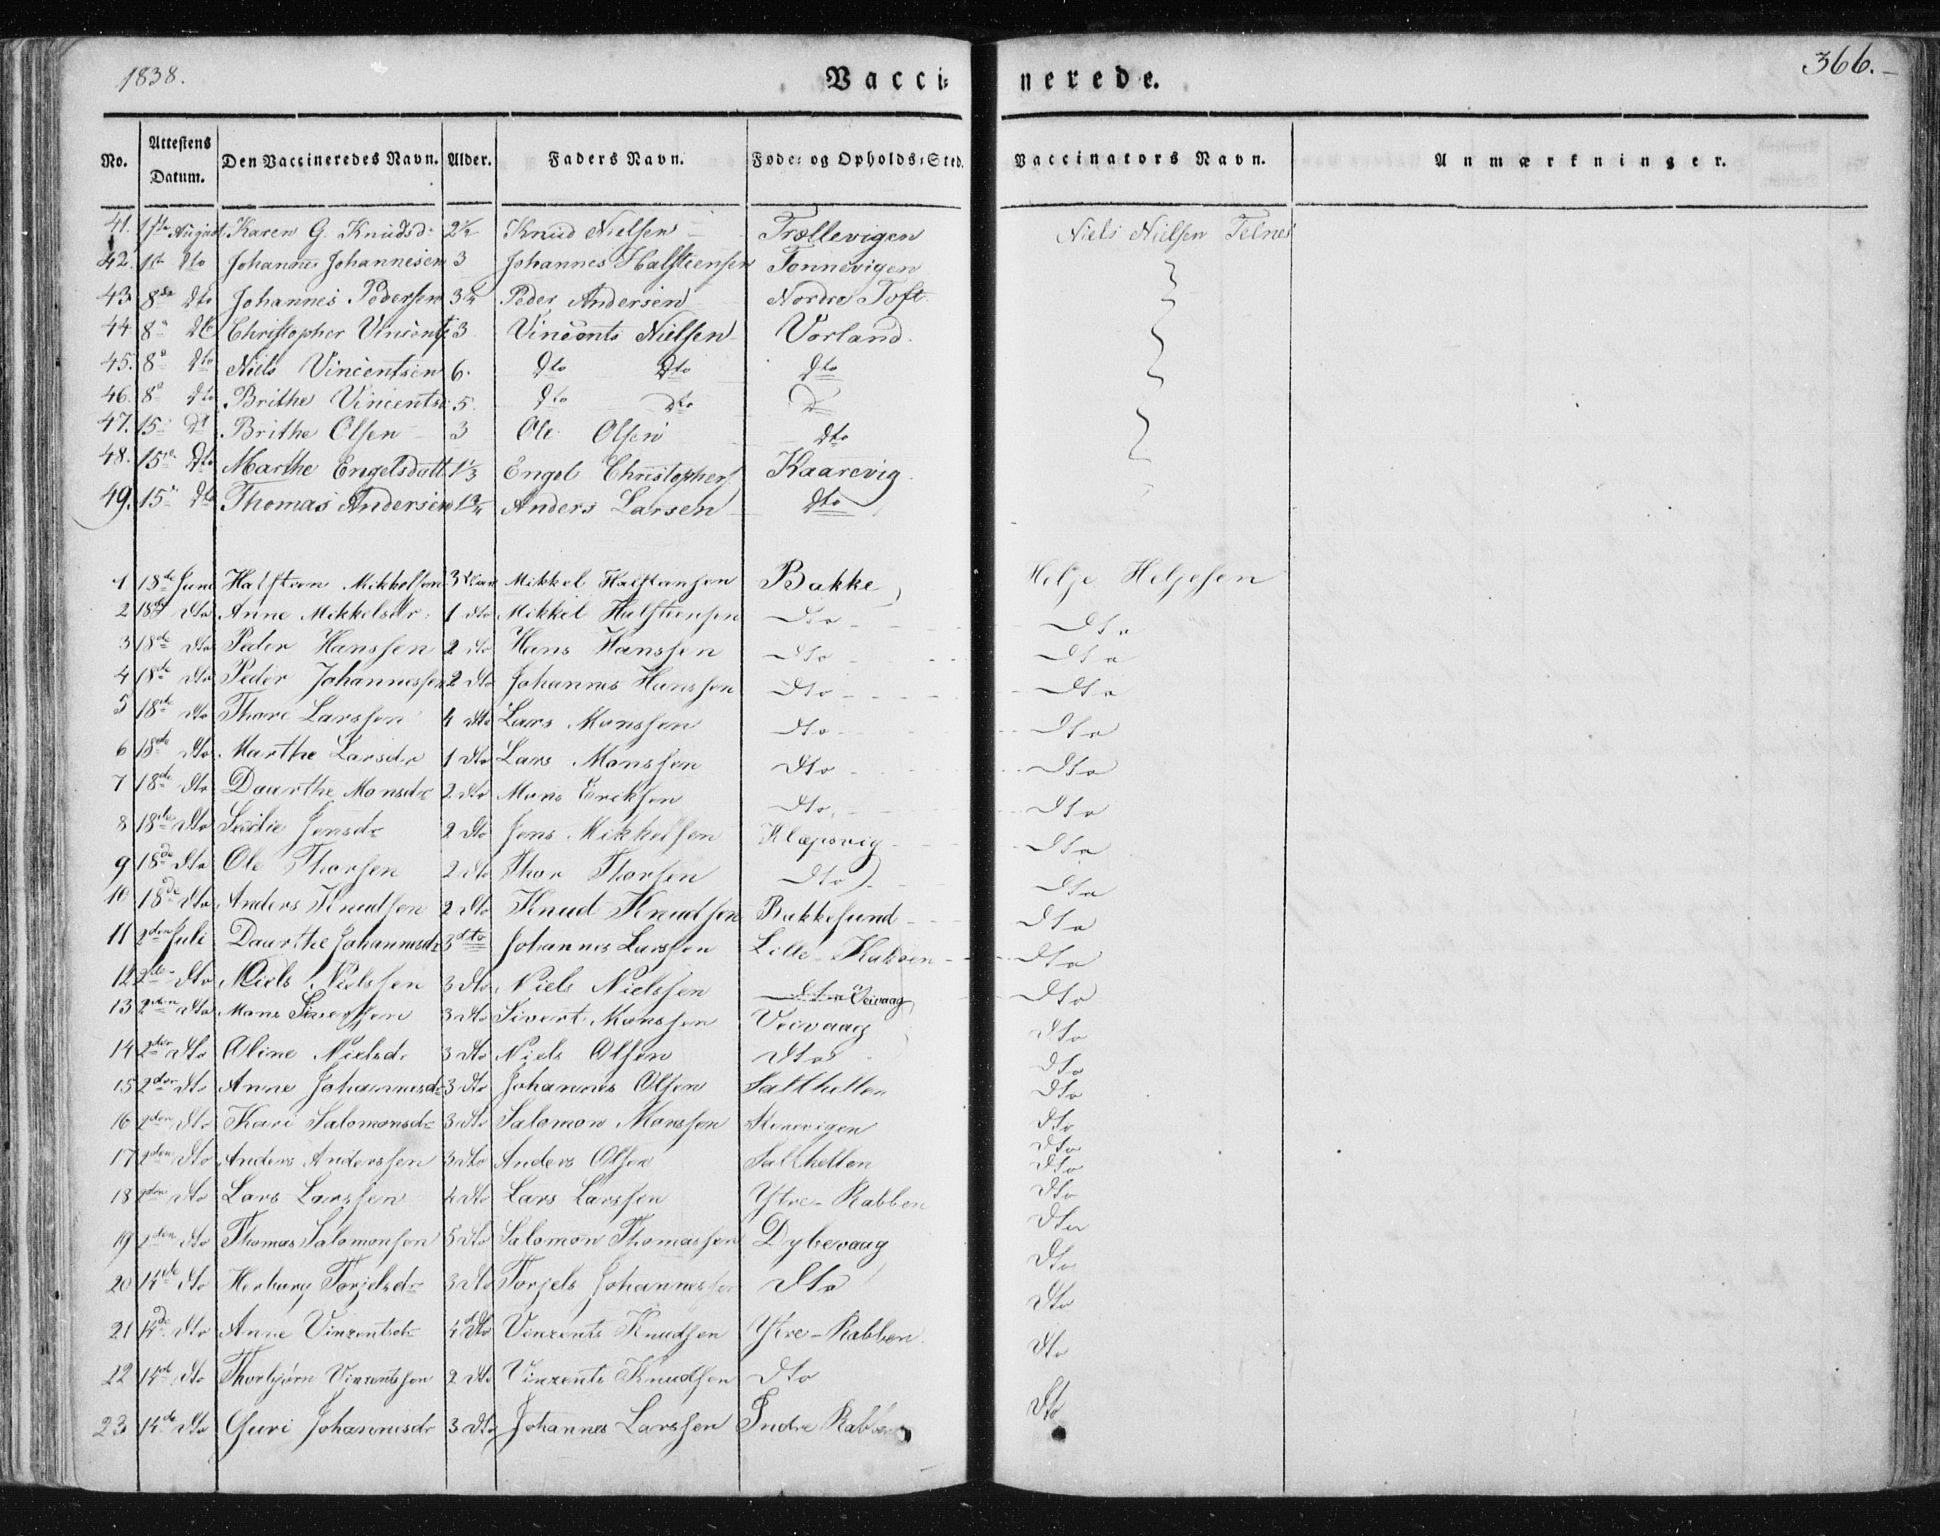 1838.
Vacci-
nerede.
366.
No. Attestens Datum. Den Vaccineredes Navn. Alder. Faders Navn. Føde- og Opholds-Sted. Vaccinators Navn. Anmærkninger.
41. 1ste August Karen G. Knudsd. 2½ Knud Nielsen Trællevigen Niels Nielsen Telnes
42. 1st Dto Johannes Johannesen 3 Johannes Halsteensen Tonnevigen
43 8de Dto Johannes Pedersen Peder Andersen Nordre Toft
44 8 Dto Christopher Vincents. 3 Vincents Nielsen Vorland.
45. 8 Dto Niels Vincentsen 6. Dto Dto Dto
46. 8 Dto Brithe Vincents 5. Dto Dto D
47. 15 Dt Brithe Olsen 3 Ole Olsen Dto
48. 15 Dto Marthe Engelsdatt. 1⅓ Engel Christophers. Kaarevig
49. 15 Dto Thomas Andersen 1¾ Anders Larsen Dto
1 18de Juni Halstein Mikkelsen 3 Aar Mikkel Halstensen Bakke Helje Heljesen
2 18de Dto Anne Mikkelsdr. 1 dto Mikkel Halsteensen Dto Dto
3 18de Dto Peder Hanssen 2 dto Hans Hanssen Dto Dto
4 18de Dto Peder Johannessen 2 Dto Johannes Hanssen Dto Dto
5 18de Dto Thore Larssen 4 Dto Lars Monssen Dto Dto
6 18de Dto Marthe Larsdr 1 Dto Lars Monssen Dto Dto
7 18de Dto Daarthe Monsdr 2 Dto Mons Eriksen Dto Dto
8 18de Dto Jensdr 2 Dto Jens Mikkelsen Klæpsvig Dto
9 18de Dto Ole Thorsen 2 Dto Thor Thorsen Dto Dto
10 18de Dto Anders Knudsen 2 Dto Knud Knudsen Bakkesund Dto
11 2den Juli Daarthe Johannesdr 3 dto Johannes Larssen Lille-Rabben Dto
12 2de Dto Niels Nielssen 3 Dto Niels Nielssen Dto Veivaag Dto
13 2den Dto Mons Sivertsen 3 Dto Sivert Monssen Veivaag Dto
14 2den Dto Oline Nielsd. 3 Dto Niels Olsen Dto Dto
15 2den Dto Anne Johannesdr 3 Dto Johannes Olsen Salthellen Dto
16 2den Dto Kari Salomonsdr 3 Dto Salomon Monssen Dto
17 2den Dto Anders Anderssen 3 Dto Anders Olsen Salthellen Dto
18 2den Dto Lars Larssen 4 Dto Lars Larssen Ytre-Rabben Dto
19 2den Dto Thomas Salomonsen 5 Dto Salomon Thomassen Dybevaag Dto
20 14de Dto Herborg Torjelsdr 3 Dto Torjels Johannessen Dto Dto
21 14de Dto Anne Vinzentsdr 4 Dto Vinzents Knudsen Ytre-Rabben Dto
22 14de Dto Thorbjørn Vinzentssen 2 Dto Vinzents Knudsen Dto Dto
23 14de Dto Guri Johannesdr 3 Dto Johannes Larssen Indre Rabben Dto